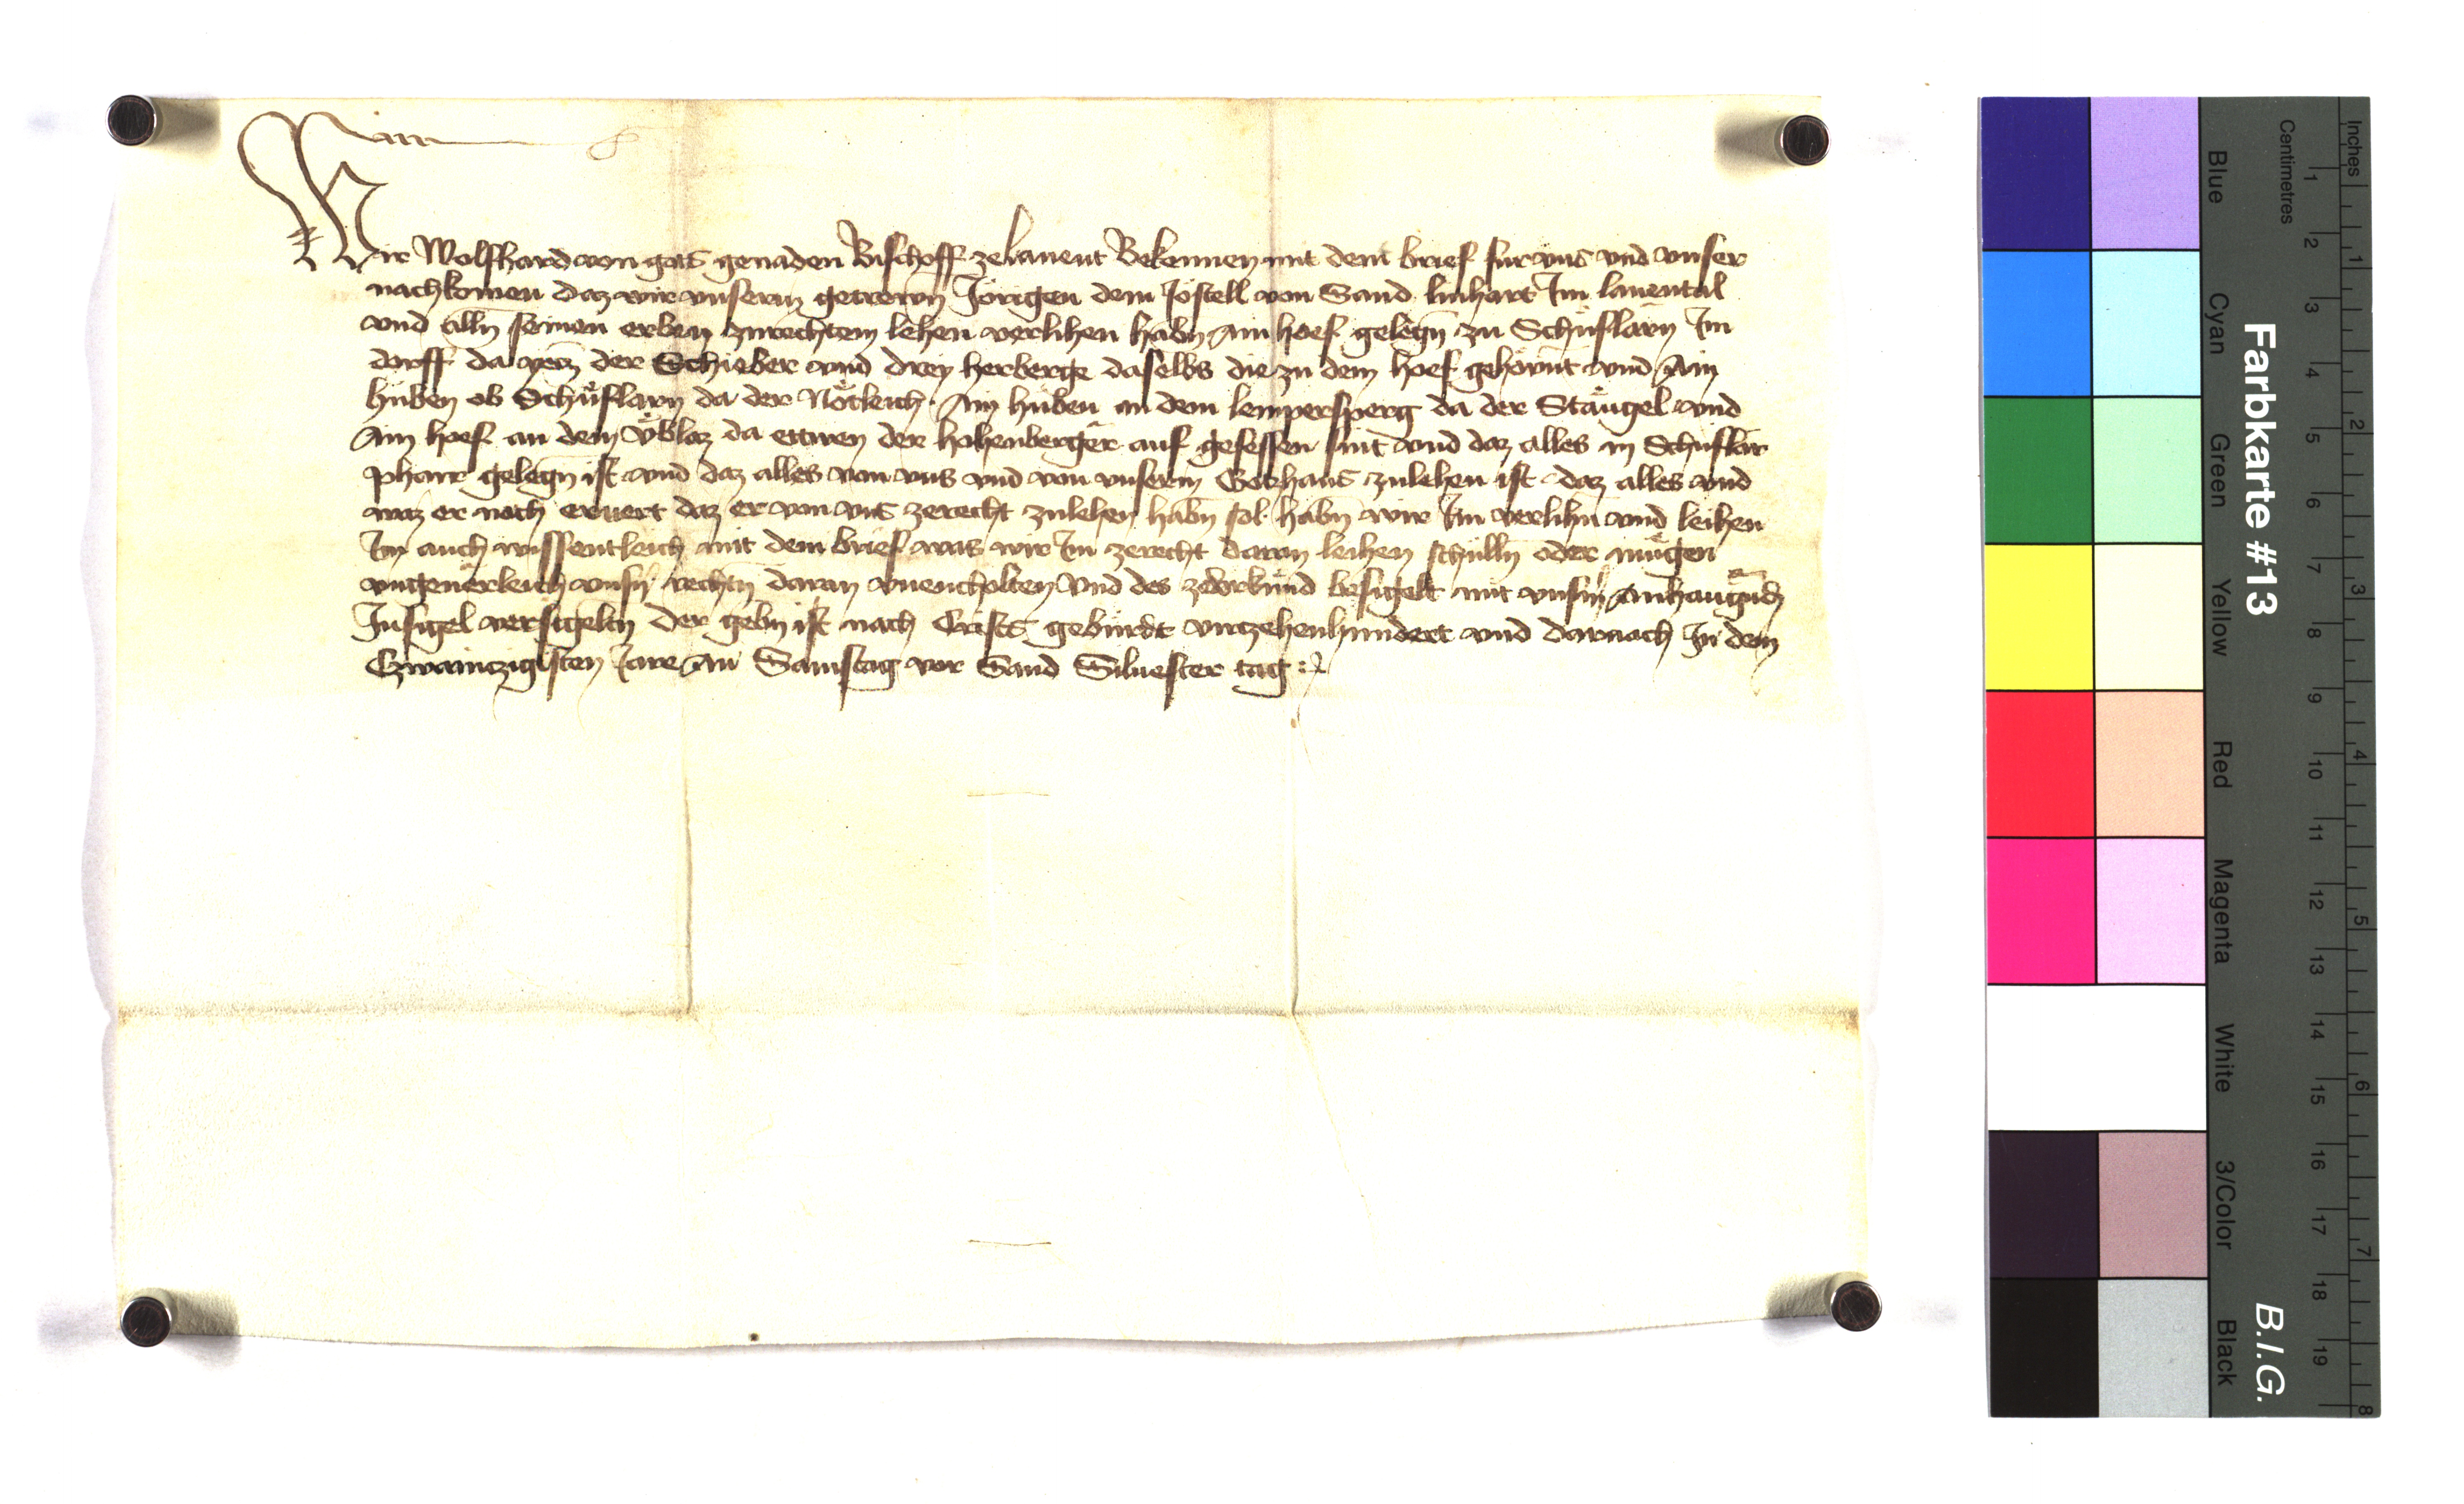 Wir Wolfhard von gots genaden Bischoff zelauent Bekennen mit dem brief fur vns vnd vnser
nachkomen daz wir vnserm getrewn Jörigen dem Jöstell von Sand linhart Im lauental
vnd alln seinen erben zurechtem lehen verlihen habn Ain hoef gelegn zu Schüflarn Im
dorff da der Schieber vnd drey herberge daselbs die zu dem hoef gehörnt vnd Ain
huben ob Schüflarn da der Nötleich Ain huben an dem lempersperg da der Stängel vnd
Ain hoef an dem da ettwen der hohenberger auf gesessen sint vnd daz alles in Schüflär
pharr gelegn ist vnd daz alles von vns vnd von vnserm Gotzhaus zulehen ist daz alles vnd
waz er noch eruert daz er von vns zerecht zulehen habn sol habn wir Im verlihn vnd leihen
Im auch wissentleich mit dem brief was wir Im zerecht daran leihen schulln oder mügen
vngeuerleich vnsn rechtn daran vnencholten Vnd des zevrkund besigelt mit vnserm Anhangudm
Insigel versigeltn der gebn ist nach Crists gebürdt virtzehenhundert vnd darnach In dem
Czwainczigisten Jare Am Samstag vor Sand Siluester tag
Farbkarte #13
B.I.G.
Inches
Centimetres
1 2 3 4 5 6 7 8
1 2 3 4 5 6 7 8 9 10 11 12 13 14 15 16 17 18 19
Blue
Cyan
Green
Yellow
Red
Magenta
White
3/Color
Black